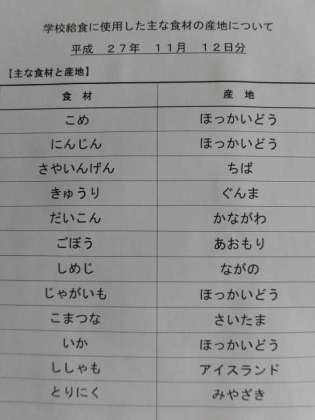 学校給食に使用した主な食材の産地について
平成　２７年　１１月　１２日分
【主な食材と産地】
食　材　産　地
こめ　ほっかいどう
にんじん　ほっかいどう
さやいんげん　ちば
きゅうり　ぐんま
だいこん　かながわ
ごぼう　あおもり
しめじ　ながの
じゃがいも　ほっかいどう
こまつな　さいたま
いか　ほっかいどう
ししゃも　アイスランド
とりにく　みやざき